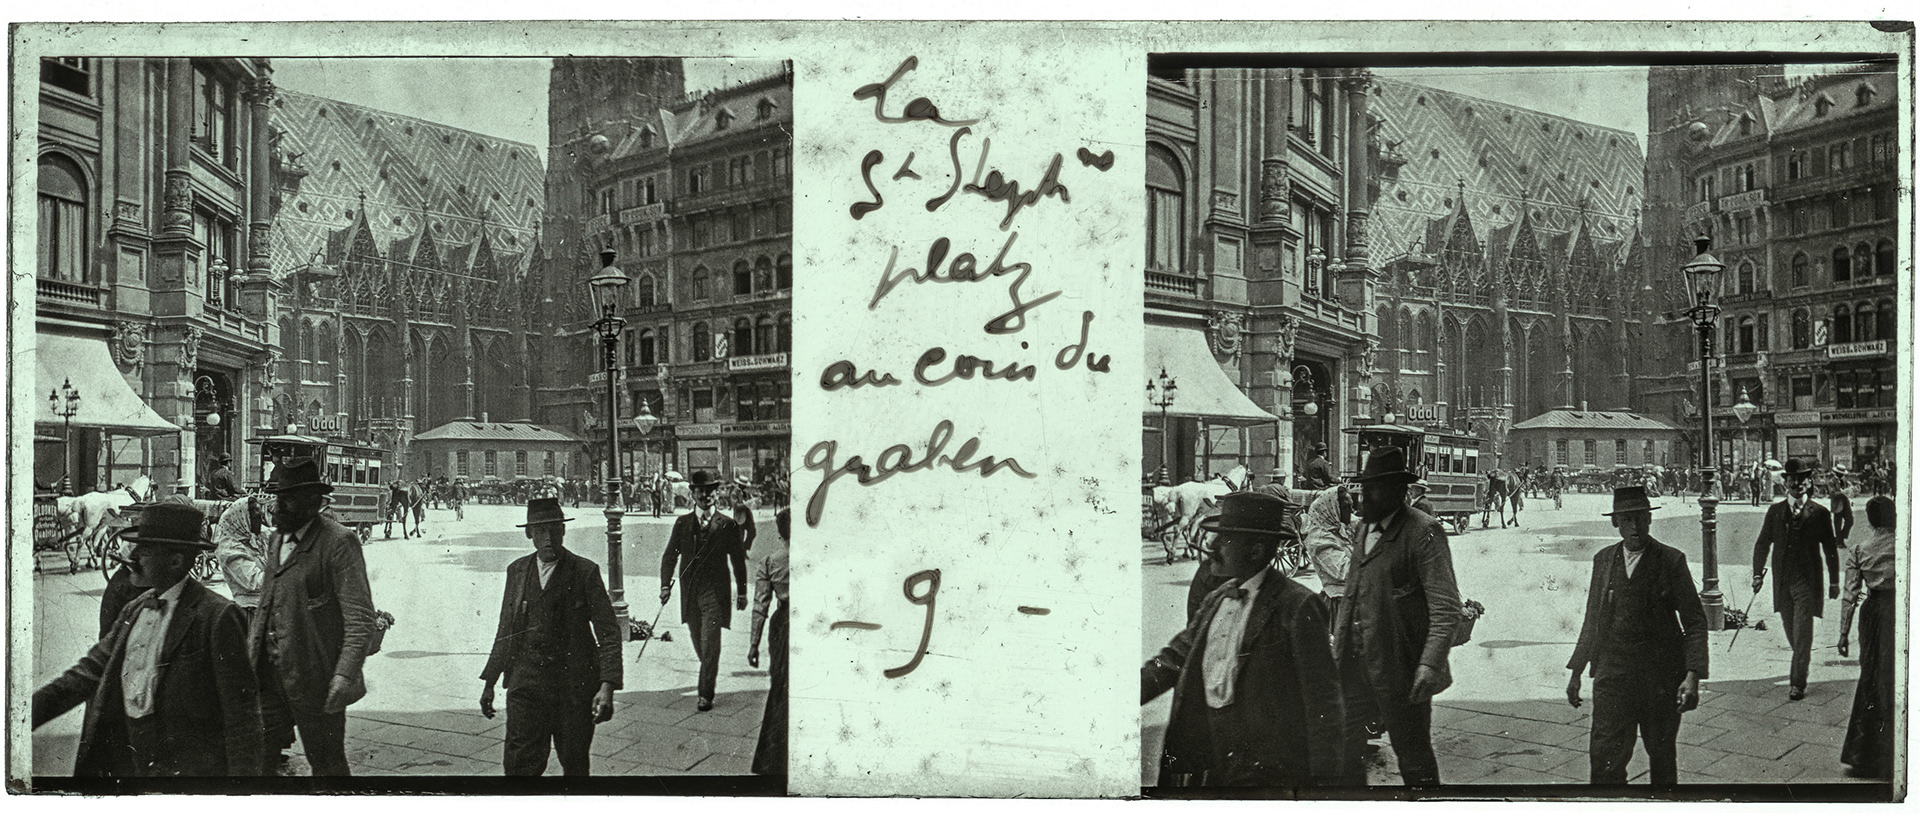 La
St Steph
platz
au coin du
graben
- 9 -
Odol
WEISS & SCHWARZ
Odol
WEISS & SCHWARZ